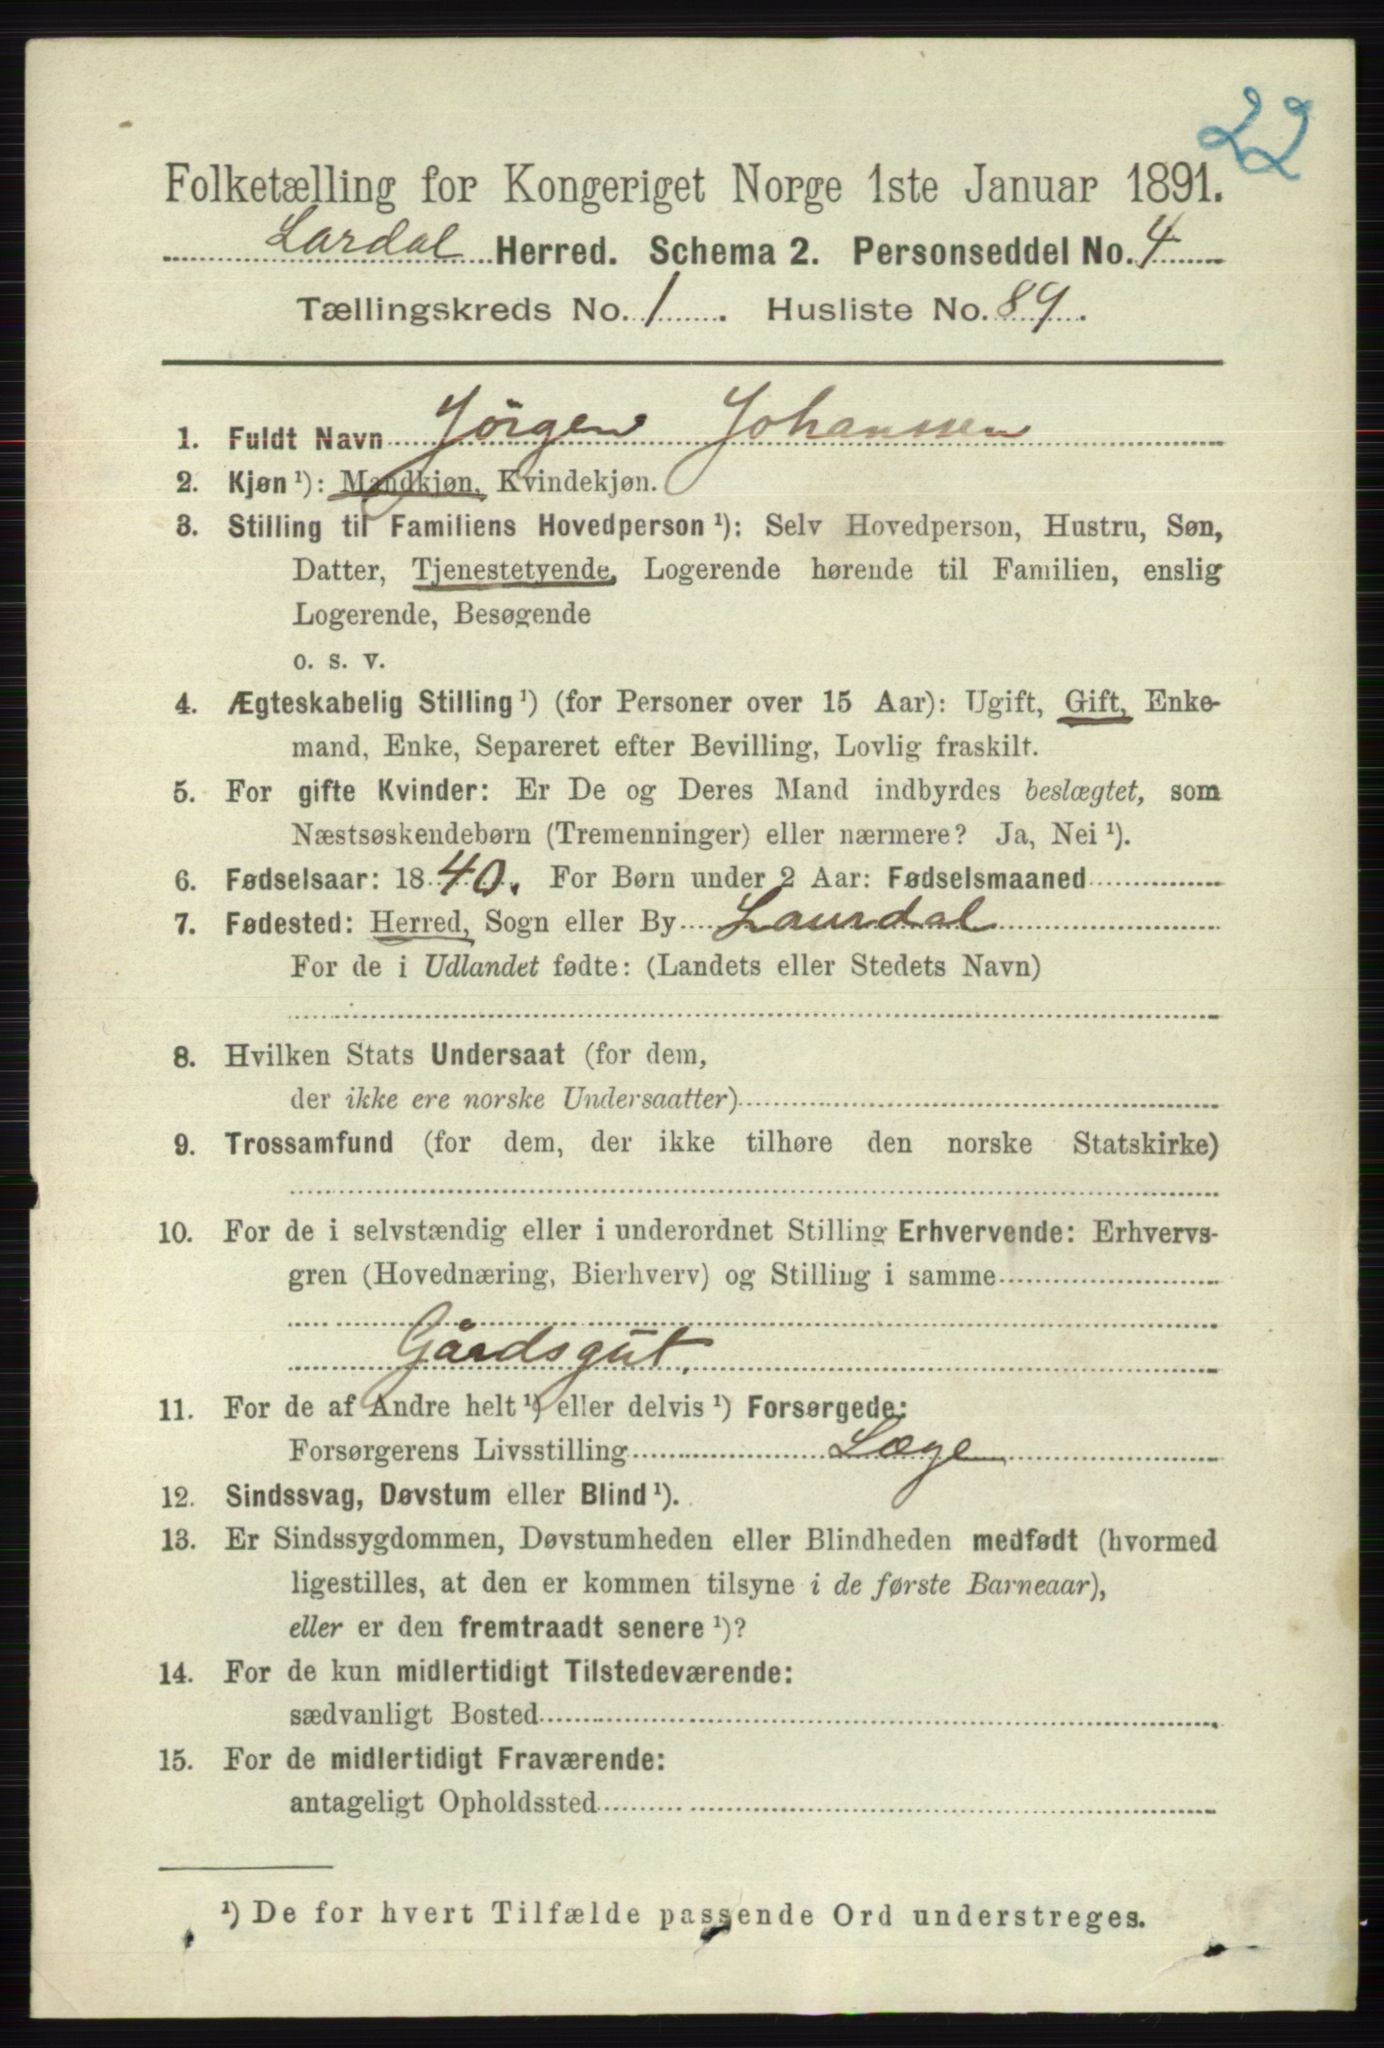 22
Folketælling for Kongeriget Norge 1ste Januar 1891.
Lardal Herred. Schema 2. Personseddel No. 4
Tællingskreds No. 1. Husliste No. 89.
1. Fuldt Navn Jörgen Johanssen
2. Kjøn ¹): Mandkjøn, Kvindekjøn.
3. Stilling til Familiens Hovedperson ¹): Selv Hovedperson, Hustru, Søn,
Datter, Tjenestetyende, Logerende hørende til Familien, enslig
Logerende, Besøgende
o. s. v.
4. Ægteskabelig Stilling ¹) (for Personer over 15 Aar): Ugift, Gift, Enke-
mand, Enke, Separeret efter Bevilling, Lovlig fraskilt.
5. For gifte Kvinder: Er De og Deres Mand indbyrdes beslægtet, som
Næstsøskendebørn (Tremenninger) eller nærmere? Ja, Nei ¹).
6. Fødselsaar: 1840. For Børn under 2 Aar: Fødselsmaaned
7. Fødested: Herred, Sogn eller By Laurdal
For de i Udlandet fødte: (Landets eller Stedets Navn)
8. Hvilken Stats Undersaat (for dem,
der ikke ere norske Undersaatter)
9. Trossamfund (for dem, der ikke tilhøre den norske Statskirke)
10. For de i selvstændig eller i underordnet Stilling Erhvervende: Erhvervs-
gren (Hovednæring, Bierhverv) og Stilling i samme
Gårdsgut.
11. For de af Andre helt ¹) eller delvis ¹) Forsørgede:
Forsørgerens Livsstilling Læge
12. Sindssvag, Døvstum eller Blind ¹).
13. Er Sindssygdommen, Døvstumheden eller Blindheden medfødt (hvormed
ligestilles, at den er kommen tilsyne i de første Barneaar),
eller er den fremtraadt senere ¹)?
14. For de kun midlertidigt Tilstedeværende:
sædvanligt Bosted
15. For de midlertidigt Fraværende:
antageligt Opholdssted
¹) De for hvert Tilfælde passende Ord understreges.